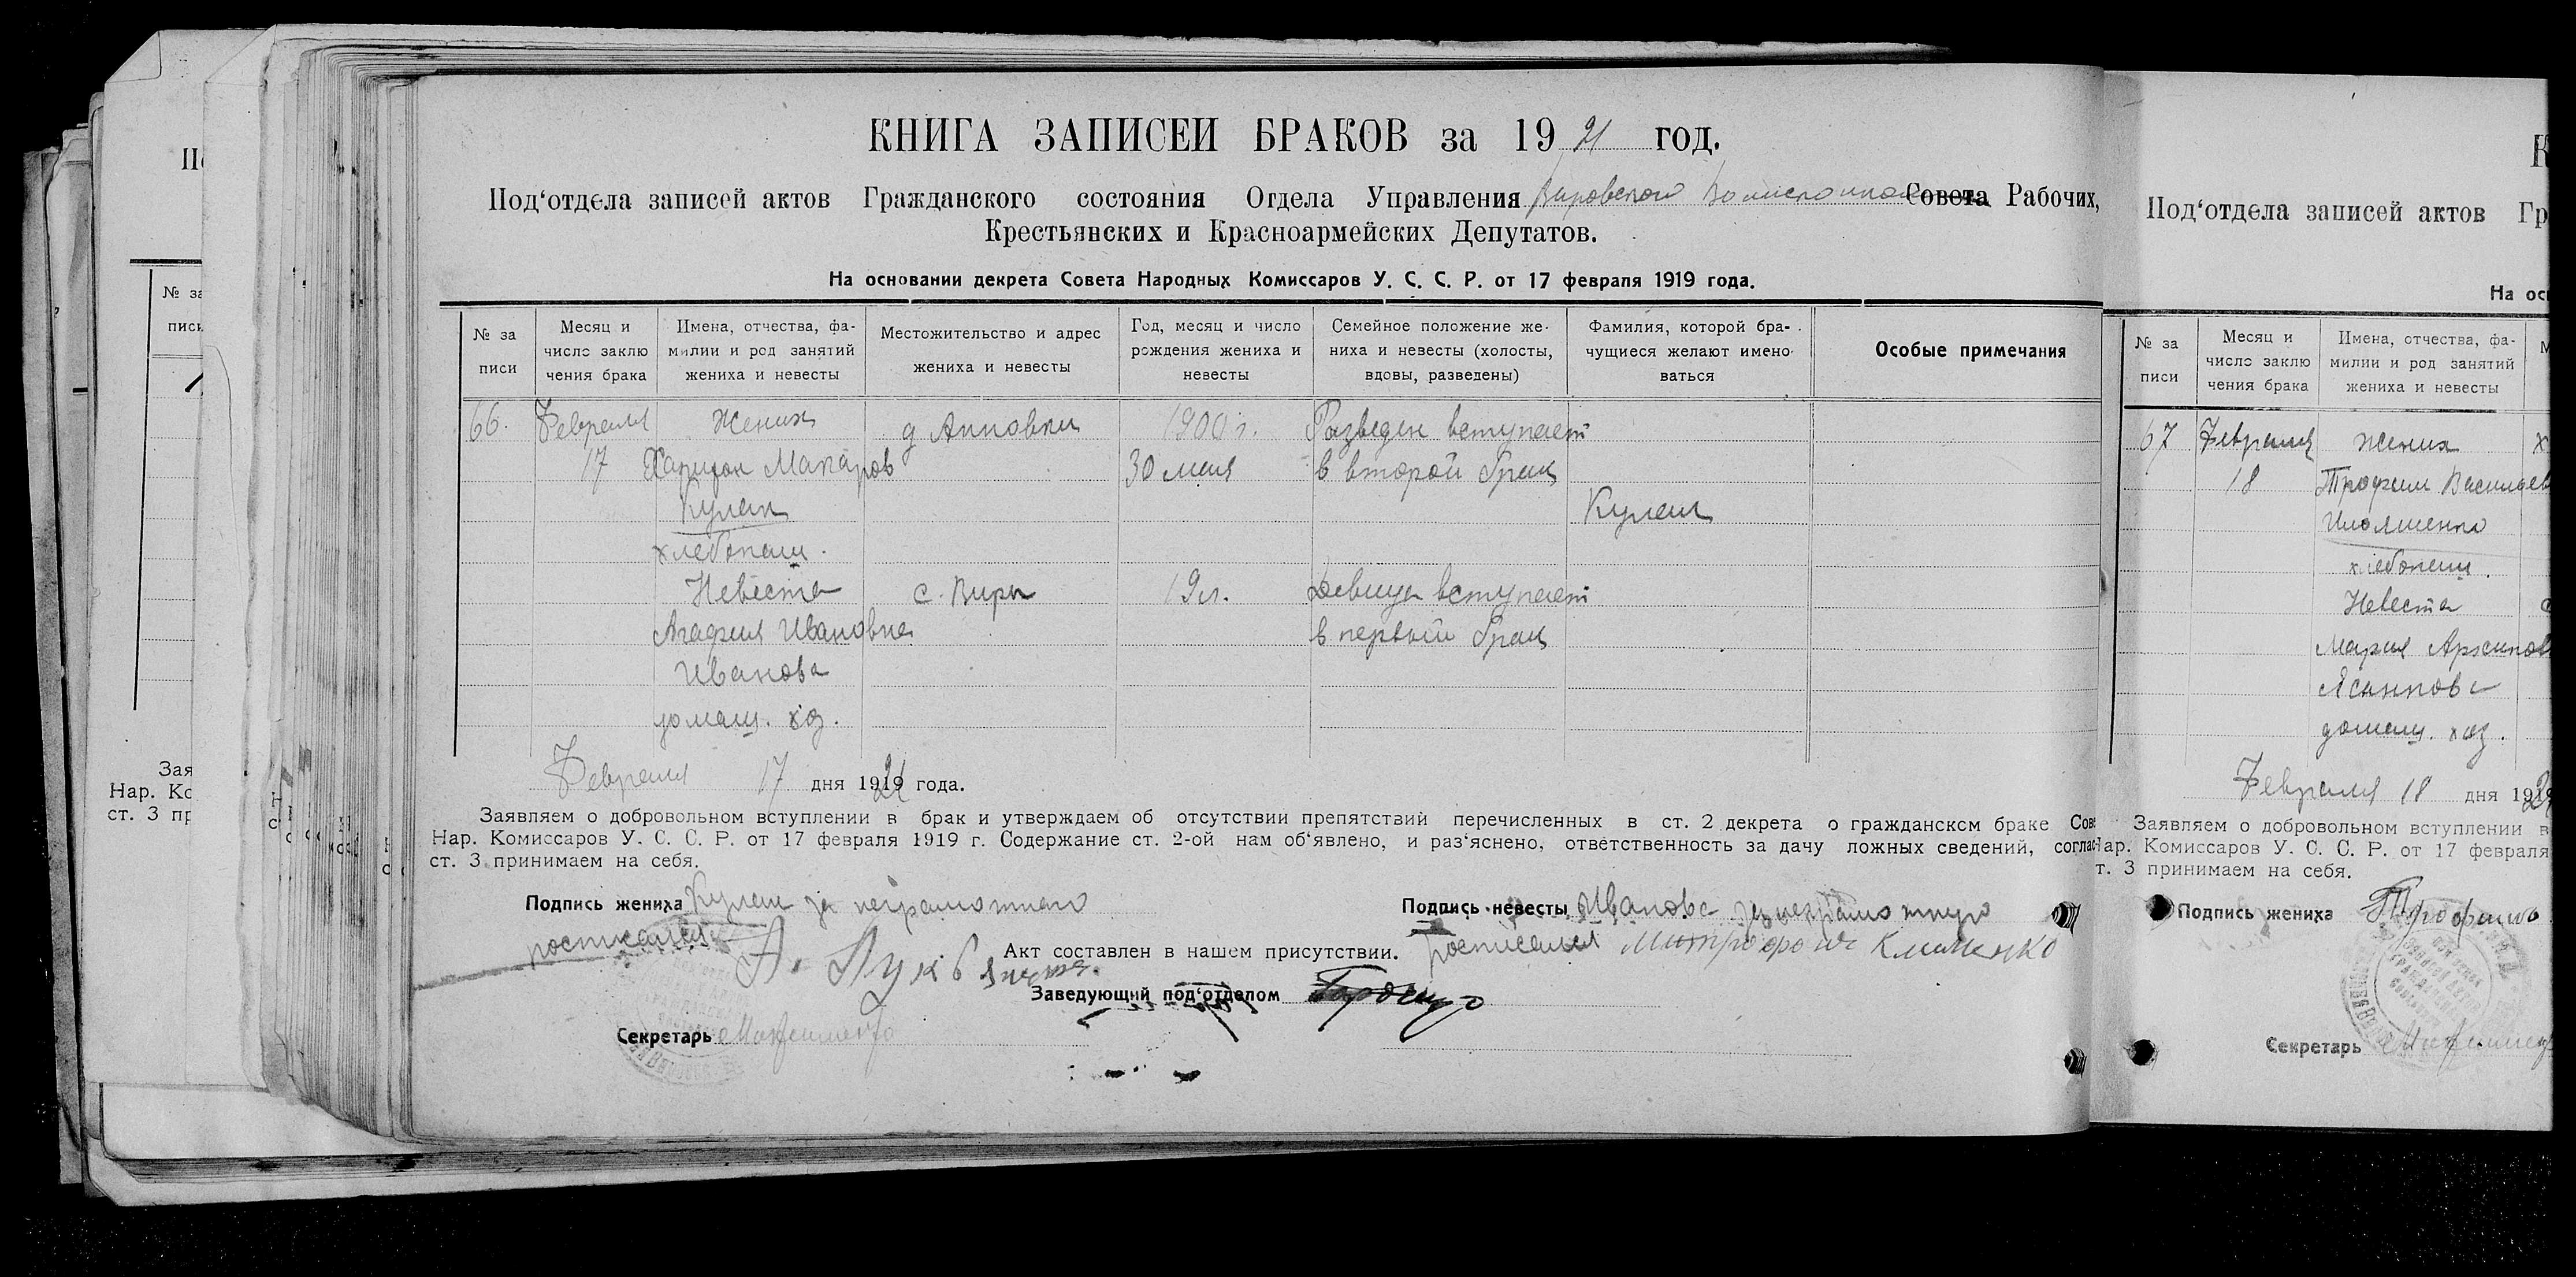 КНИГА ЗАПИСЕЙ БРАКОВ за 1921 год.
Под‘отдела записей актов Гражданского состояния Отдела Управления Вировского Совета Рабочих,
Крестьянских и Красноармейских Депутатов.
На основании декрета Совета Народных Комиссаров У. С. С. Р. от 17 февраля 1919 года.
№ за писи
Месяц и число заклю чения брака
Имена, отчества, фа- милии и род занятий жениха и невесты
Местожительство и адрес жениха и невесты
Год, месяц и число рождения жениха и невесты
Семейное положение же- ниха и невесты (холосты, вдовы, разведены)
Фамилия, которой бра- чущиеся желают имено- ваться
Особые примечания
66. Февраля Жених д Анновки 1900 г. Разведен вступает
17 Харитон Макаров 30 мая в второй брак
Кулеш Кулеш
хлебопаш.
Невеста с. Виры 19 л. Девица вступает
Агафия Ивановна в первый брак
Иванова
домаш. хоз.
Февраля 17 дня 1921 года.
Заявляем о добровольном вступлении в брак и утверждаем об отсутствии препятствий перечисленных в ст. 2 декрета о гражданском браке Сове
Нар. Комиссаров У. С. С. Р. от 17 февраля 1919 г. Содержание ст. 2-ой нам об‘явлено, и раз‘яснено, ответственность за дачу ложных сведений, соглас
ст. 3 принимаем на себя.
Подпись жениха Кулеш за неграмотного
Подпись невесты Иванова за неграмотную
росписался
Акт составлен в нашем присутствии.
росписался Митрофан Клименко
Заведующий под‘отделом
Секретарь
К
Под‘отдела записей актов Гр
На ос
№ за писи
Месяц и число заклю чения брака
Имена, отчества, фа- милии и род занятий жениха и невесты
М
67 Февраля Жених х
18 Трофим Васильев
Ильяшенко
хлебопаш.
Невеста
Мария Архипов
домаш. хоз.
Февраля 18 дня 192
Заявляем о добровольном вступлении в
Нар. Комиссаров У. С. С. Р. от 17 февраля
т. 3 принимаем на себя.
Подпись жениха
Секретарь
№ за
писи
Зая
Нар. Ко
ст. 3 пр